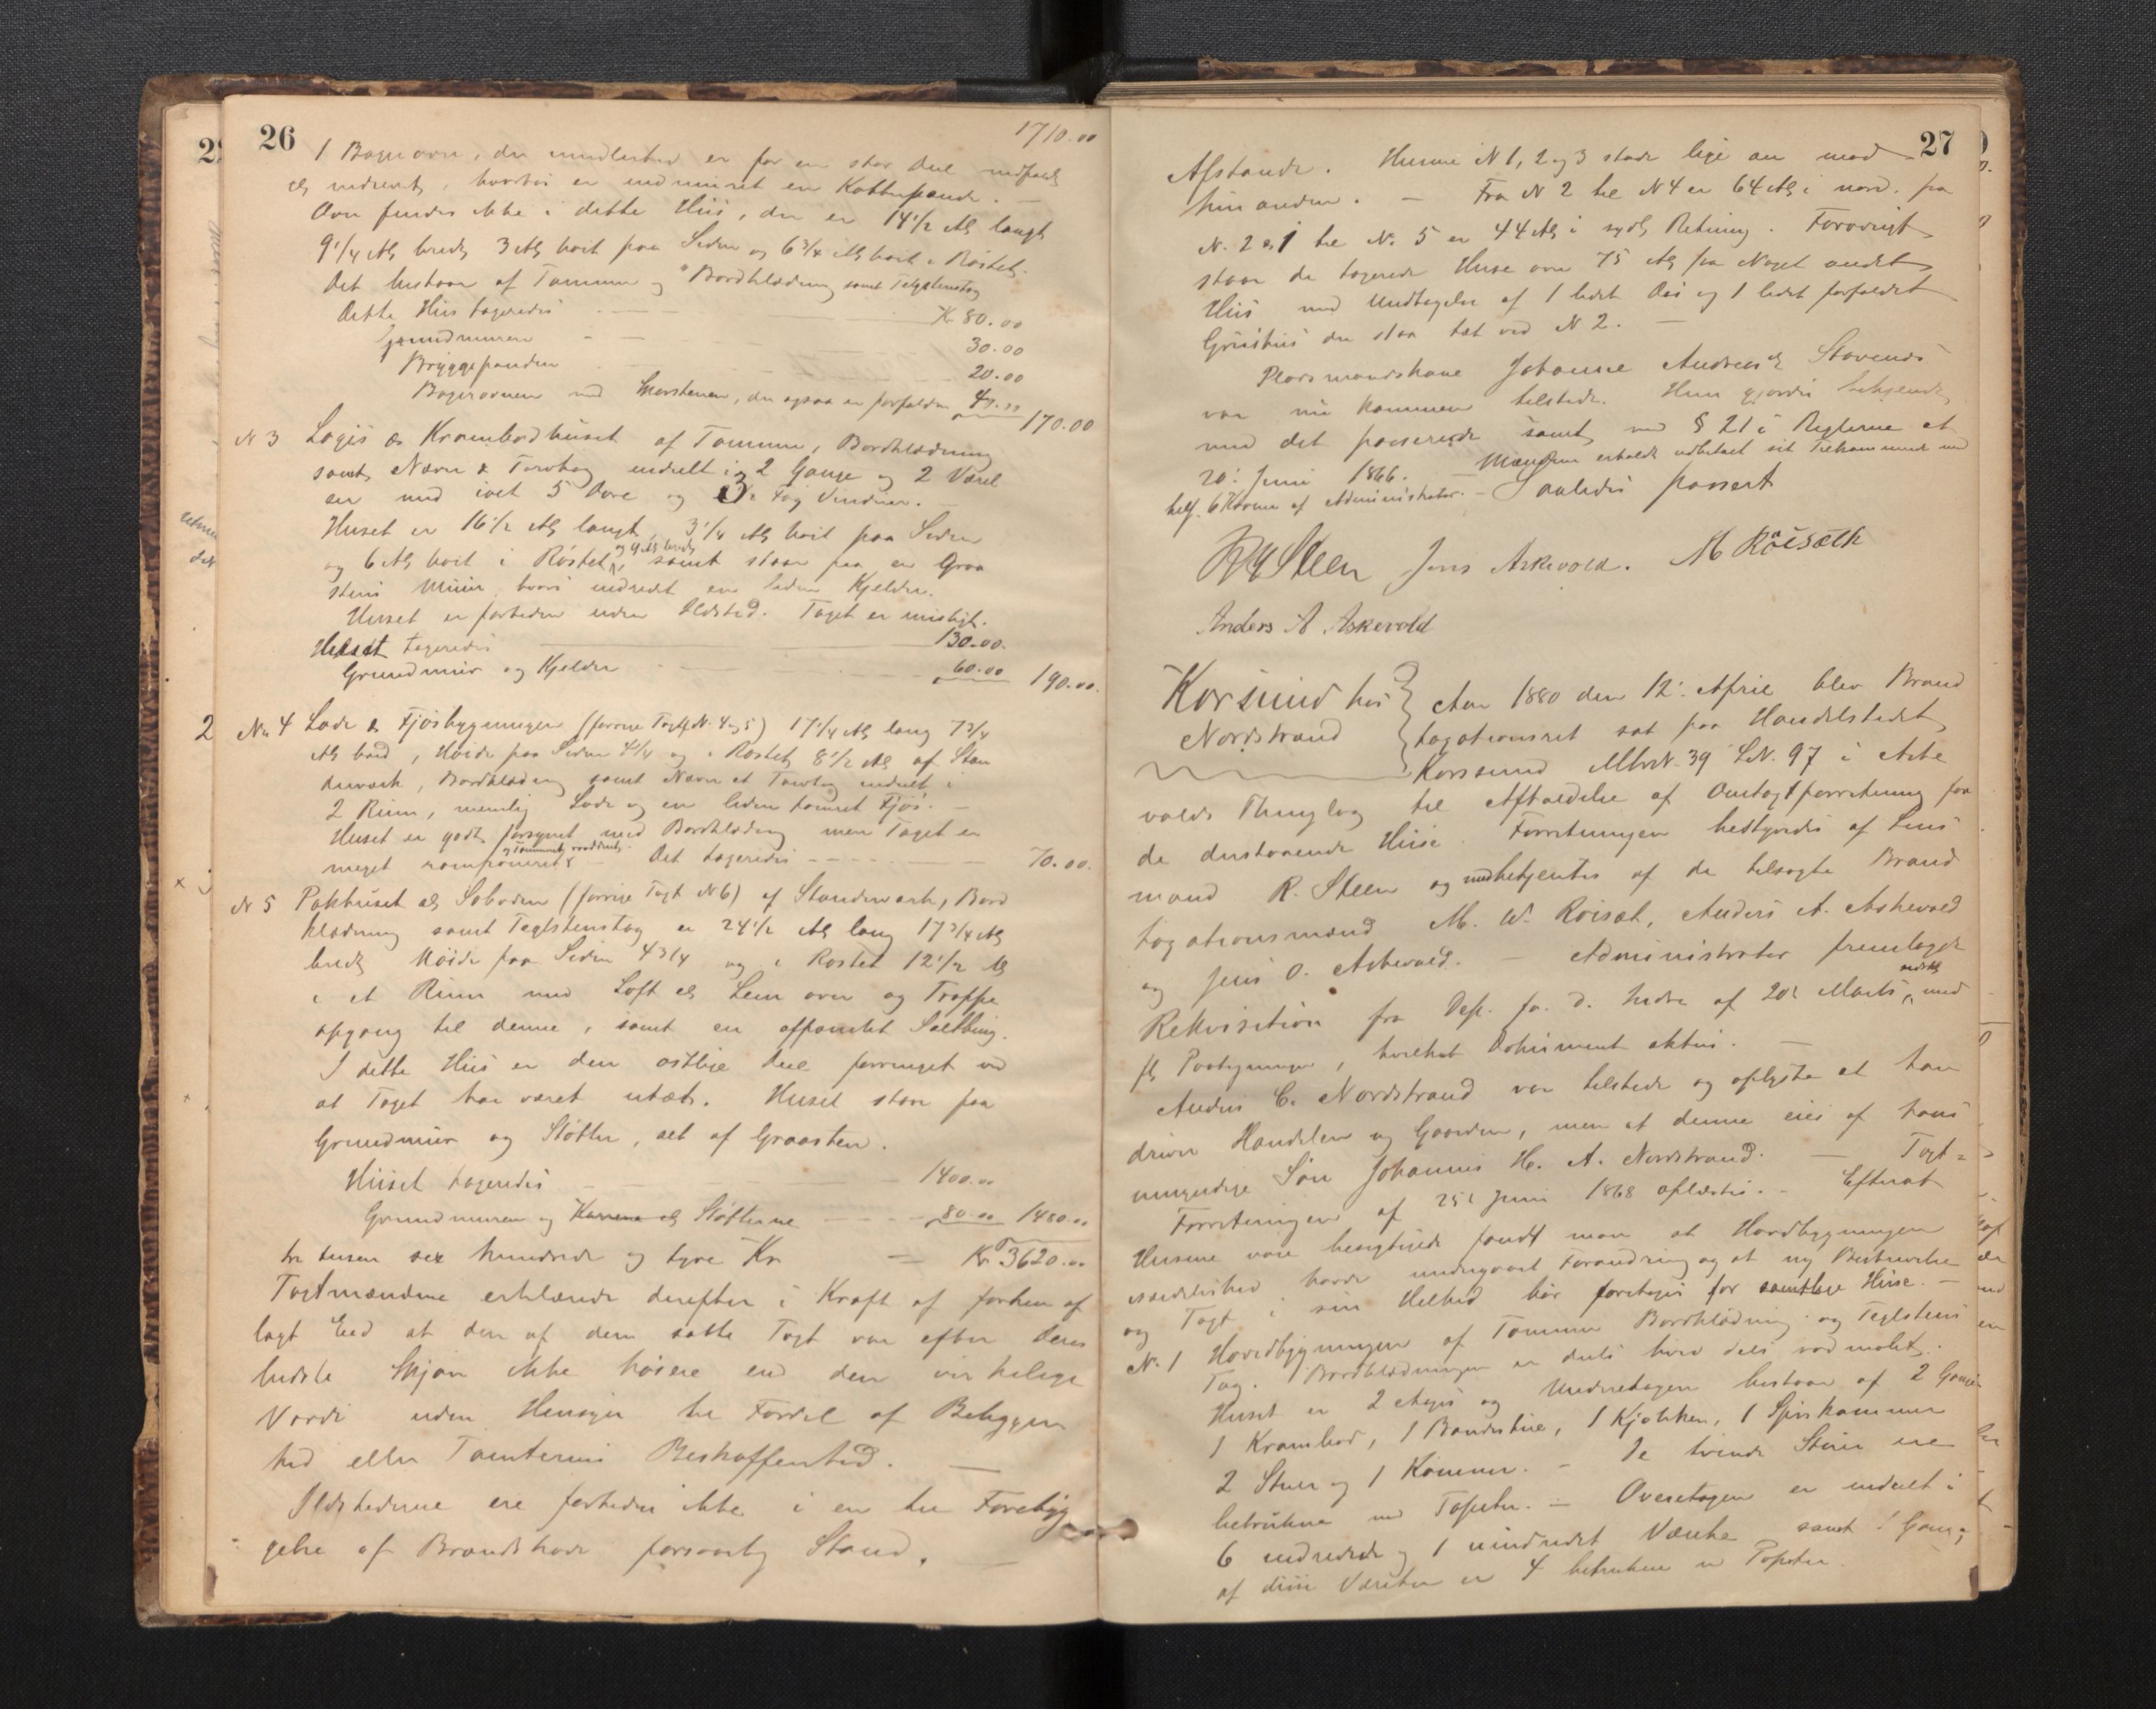 26
1710.00
1 Bagerovn, der imidlertid er for en stor Deel nedfaldt
og nedrevet, hvorhos er indmuret en Kaffepande. —
Ovn findes ikke i dette Huus, der er 14 1/2 Al langt
9 1/4 Al bredt 3 Al høit paa Siden og 6 3/4 Al høit i Røstet.
Det bestaar af Tømmer og Bordklædning samt Teglstenstag
Dette Huus taxeredes — Kr 80.00
Grundmuren — 30.00
Bryggepanden — 20.00
Bagerovnen med Skorstenen, der ogsaa er forfalden 40.00
170.00
N 3 Logis og Krambodhuset af Tømmer, Bordklædning
samt Næver & Torvtag inddelt i 2 Gange og 2 Værel
ser med ialt 5 Døre og 3 Fag Vinduer.
Huset er 16 1/2 Al langt, 3 1/4 Al høit paa Siden
og 6 Al høit i Røstet og 9 Al bredt samt staar paa en Graa
steens Muur, hvori indredet en liden Kjelder.
Huset er fortiden uden Ildsted. Taget er maadeligt.
Huset taxeredes — 130.00
Grundmuur og Kjelder — 60.00 190.00
2 No 4 Lade & Fjøsbygningen (forrige Taxt N. 4 og 5) 17 1/4 Al lang 7 3/4
Al bred, Høide paa Siden 4 1/4 og i Røstet 8 1/2 Al af Stan
derværk, Bordklædning samt Næver et Torvtag inddelt i
2 Rum, nemlig Lade og en liden tømret Fjøs. —
Huset er godt forsynet med Bordklædning men Taget er
meget ramponeret og Tømmeret raaddent. Det taxeredes — 70.00.
N 5 Pakhuset og Søboden (forrige Taxt N 6) af Standerværk, Bord
klædning samt Teglstenstag er 24 1/2 Al lang 17 3/4 Al
bredt Høide paa Siden 4 3/4 og i Røstet 12 1/2 Al
i et Rum med Loft og Lem over og Trappe
opgang til denne, samt en afpanelet Saltbing.
I dette Huus er den østlige Deel forringet ved
at Taget har været utæt. Huset staar paa
Grundmuur og Støtter, alt af Graasten.
Huset taxeredes — 1400.00
Grundmuren og Støtterne — 80.00 1480.00
tre tusen sex hundrede og tyve Kr = Kr 3620.00
Taxtmændene erklærede derefter i Kraft af forhen af
lagt Eed at den af dem satte Taxt var efter deres
bedste Skjøn ikke høiere end den virkelige
Værdi uden Hensyn til Fordel af Beliggen
hed eller Tomternes Beskaffenhed. —
Ildstederne ere fortiden ikke i en til Forebyg
gelse af Brandskade forsvarlig Stand. —
27
Afstande. Husene N 1, 2 og 3 staar lige an mod
hinanden. — Fra N 2 til N 4 er 64 Al i nord. fra
N. 2 & 1 til No 5 er 44 Al i sydl Retning. Forøvrigt
staar de taxerede Huse over 75 Al fra Noget andet
Huus med Undtagelse af 1 lidet Das og 1 lidet forfaldet
Griishus der staa tæt ved N 2. —
Pladsmandskone Johanne Andreasd Stavenes
var nu kommen tilstede. Hun gjordes bekjendt
med det passerede samt med § 21 i Reglerne af
20: Juni 1866. — Mændene erholdt udbetalt sit Tilkommende med
tils. 6 Kroner af Administrator. — Saaledes passert
R Steen Jens Askevold. M Röisæth
Anders A. Askevold
Korssund hos Nordstrand
Aar 1880 den 12: April blev Brand
taxationsret sat paa Handelstedet
Korssund Mtr N. 39 LN. 97 i Aske
volds Thinglag til Afholdelse af Omtaxtforretning paa
de derstaaende Huse. Forretningen bestyredes af Lens
mand R. Steen og medbetjentes af de tilsagte Brand
taxationsmænd M. W. Roisæt, Anders A. Askevold
og Jens O. Askevold. — Administrator fremlagde
Rekvisition fra Dep. fo. d. Indre af 20: Marts med
fl Paategninger, hvilket Dokument aktus. —
Anders C. Nordstrand var tilstede og oplyste at han
driver Handelen og Gaarden, men at denne eies af hans
umyndige Søn Johannes H. A. Nordstrand. — Taxt-
Forretningen af 25: Juni 1868 oplæstes. — Efterat
Husene vare besigtigede fandt man at Hovedbygningen
isærdeleshed havde undergaaet Forandring og at ny Beskrivelse
og Taxt i sin Helhed bør foretages for samtlige Huse. —
N. 1 Hovedbygningen af Tømmer Bordklædning og Teglstens
Tag. Bordklædningen er dels hvid dels rød malet.
Huset er 2 Etages og Underetagen bestaar af 2 Gange
1 Krambod, 1 Bondestue, 1 Kjøkken, 1 Spiskammer
2 Stuer og 1 Kammer. — De tvende Stuer ere
betrukne med Tapeter. — Overetagen er inddelt i
6 indredede og 1 uindredet Værelse samt 1 Gang,
af disse Værelser er 4 betrukne m Tapeter